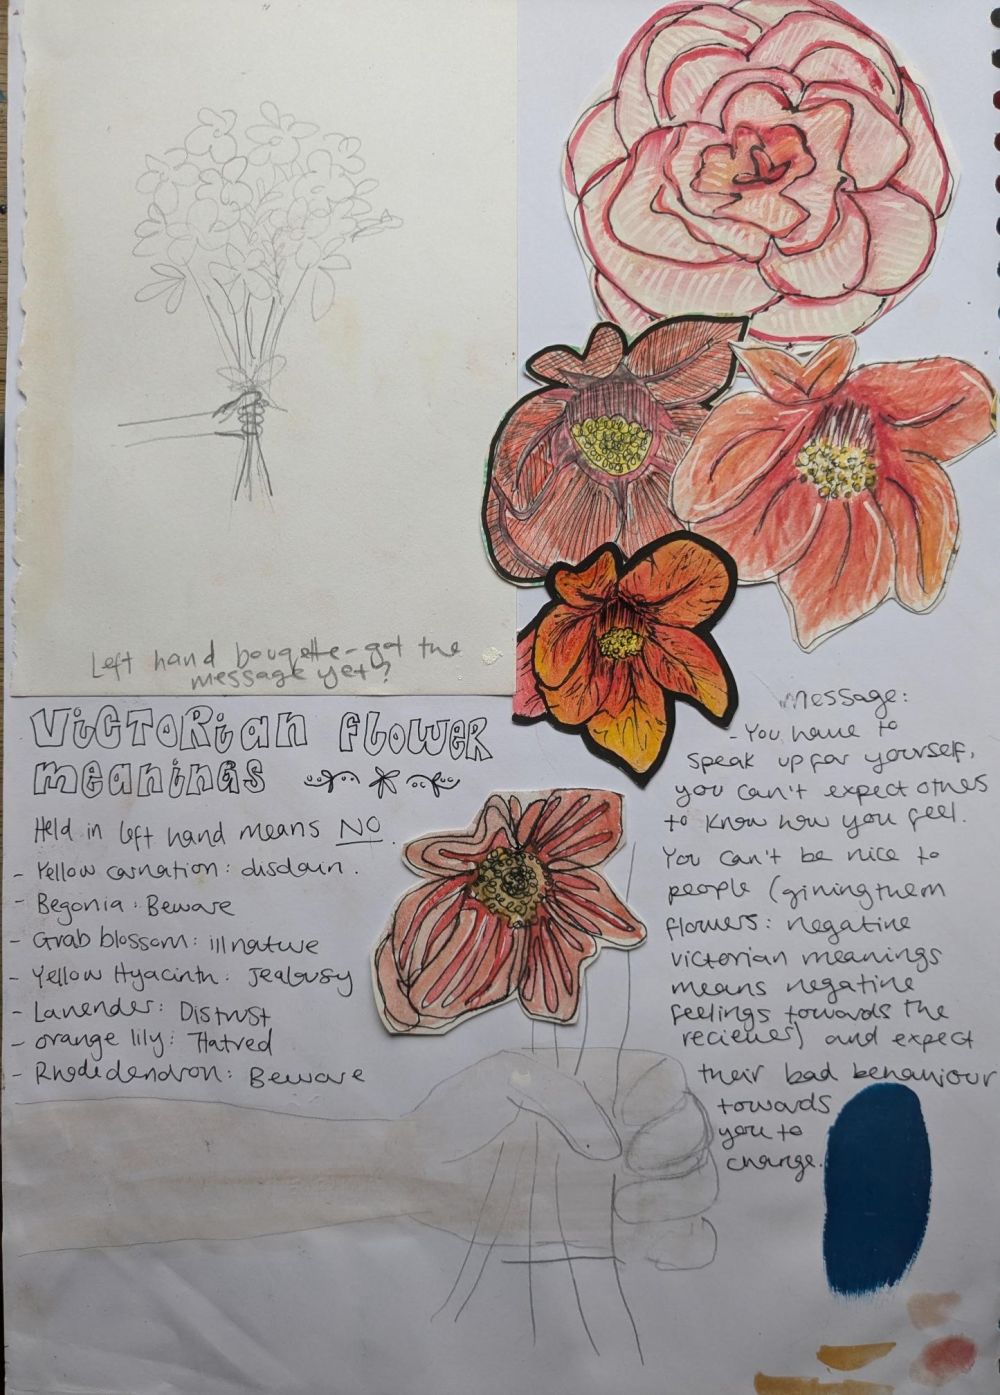 Left hand bouqette - got the
message yet?
VICTORian FLOWER
meanings
Held in left hand means NO.
- Yellow carnation: disdain.
- Begonia: Beware
- Crab blossom: ill nature
- Yellow Hyacinth: Jealousy
- Lavender: Distrust
- orange lily: Hatred
- Rhodedendron: Beware
Message:
- You have to
speak up for yourself,
you can't expect others
to know how you feel.
You can't be nice to
people (giving them
flowers: negative
victorian meanings
means negative
feelings towards the
reciever) and expect
their bad behaviour
towards
you to
change.